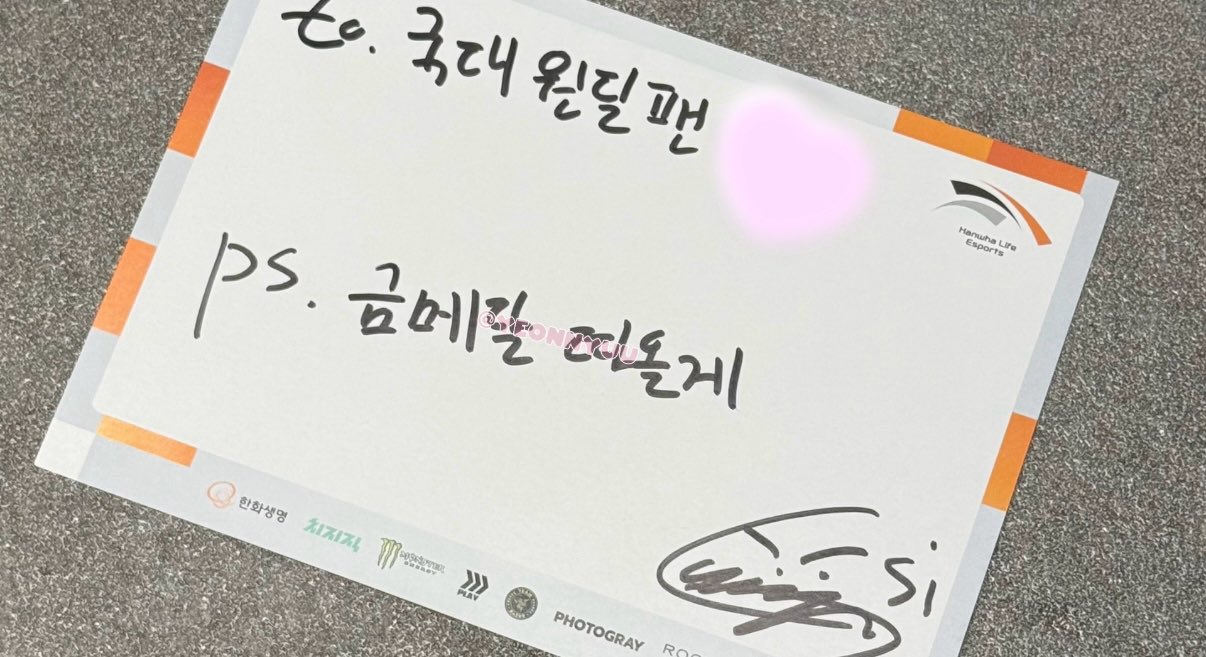 to. 국대 원딜 팬
Hanwha Life
Esports
ps. 금메달 따올게
@YEONNYUU
si
한화생명 치지직 MONSTER ENERGY PLAY PHOTOGRAY